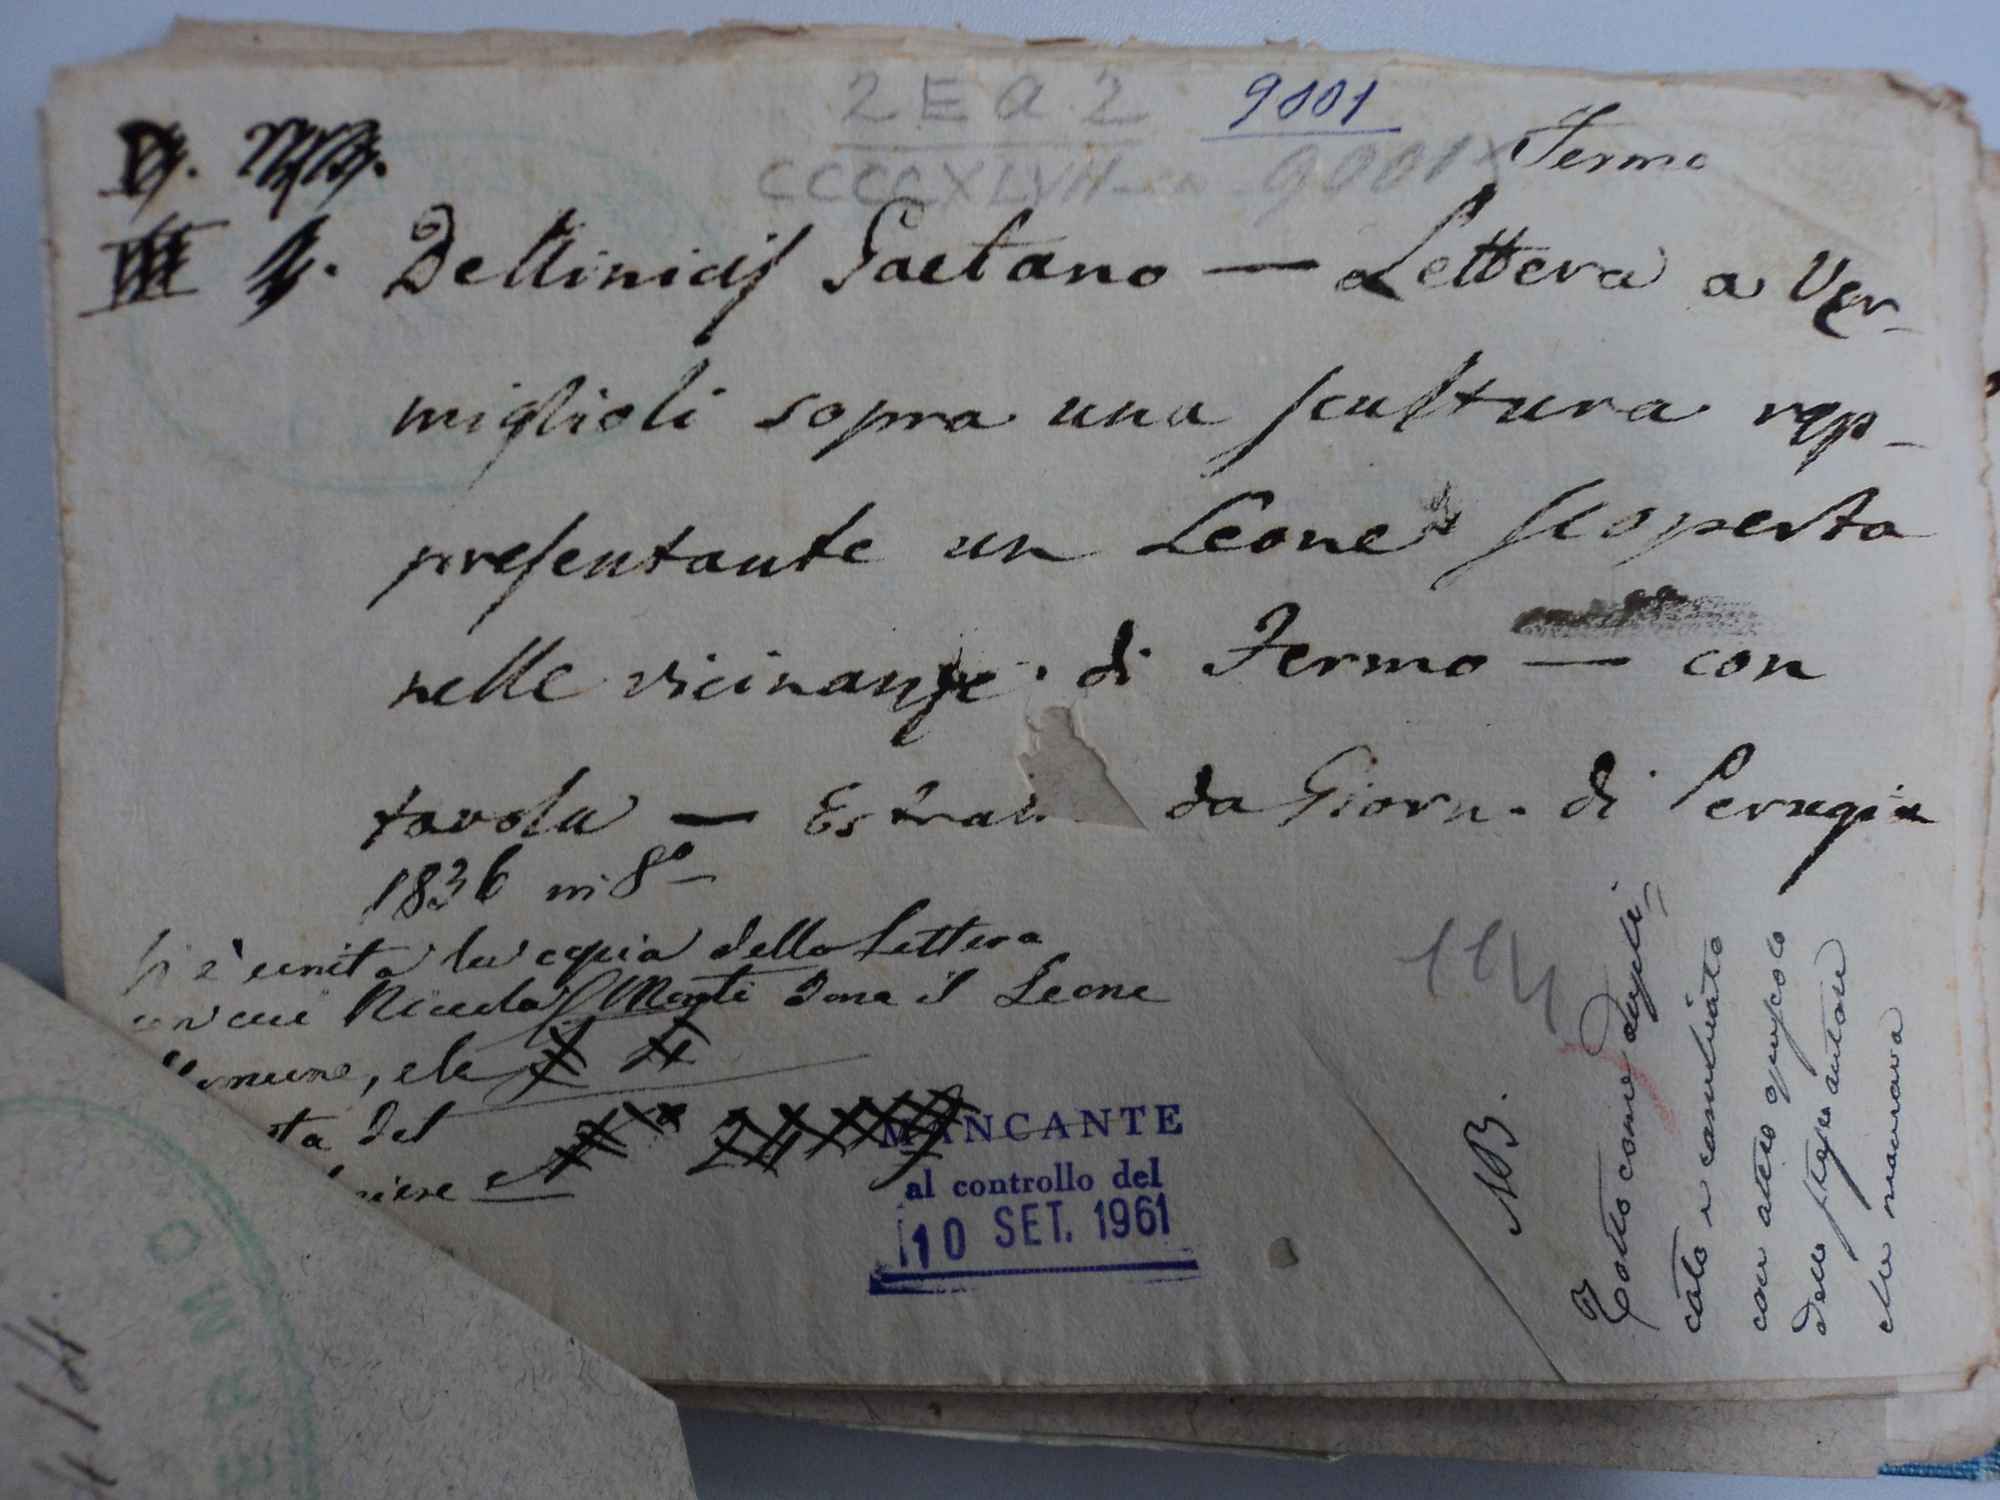 2 E a 2 9001
CCCCXLVII — n. 9001
Fermo
DeMinicis Gaetano — Lettera a Ver-
miglioli sopra una scultura rap-
presentante un Leone scoperta
nelle vicinanze di Fermo — con
tavola — Estra da Giorn. di Perugia
1836 in 8º
è unita la copia della Lettera
cui Monti dona il Leone
, e la
ta del
MANCANTE
al controllo del
10 SET. 1961
114
NB.
Tolto come dupli-
cato e cambiato
con altro opuscolo
dello stesso autore
che mancava